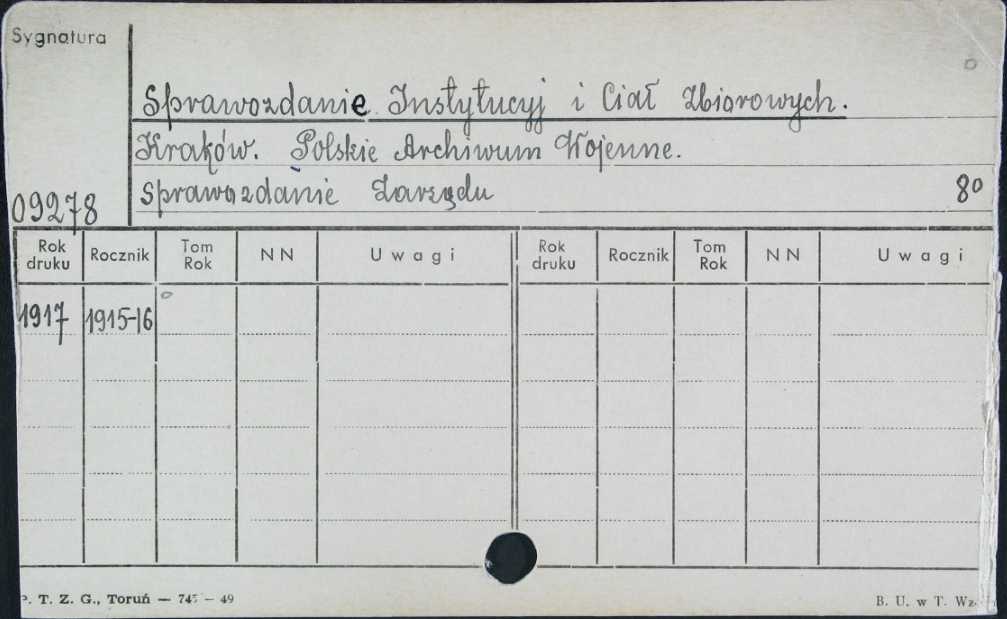 Sygnatura
Sprawozdanie Instytucyj i Ciał Zbiorowych.
Kraków. Polskie Archiwum Wojenne.
Sprawozdanie Zarządu 8°
09278
Rok druku Rocznik Tom Rok NN Uwagi Rok druku Rocznik Tom Rok NN Uwagi
1917 1915-16
P. T. Z. G., Toruń — 745 — 49 B. U. w T. Wz.